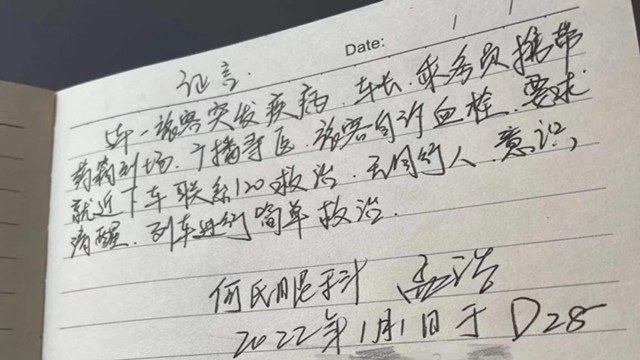 Date:
证言.
车一旅客突发疾病.车长.乘务员携带
药箱到场.广播寻医.旅客自诉血栓.要求
就近下车联系120救治.无同行人 意识
清醒.列车进行简单救治.
何氏眼科 孟浩
2022年1月1日于D28